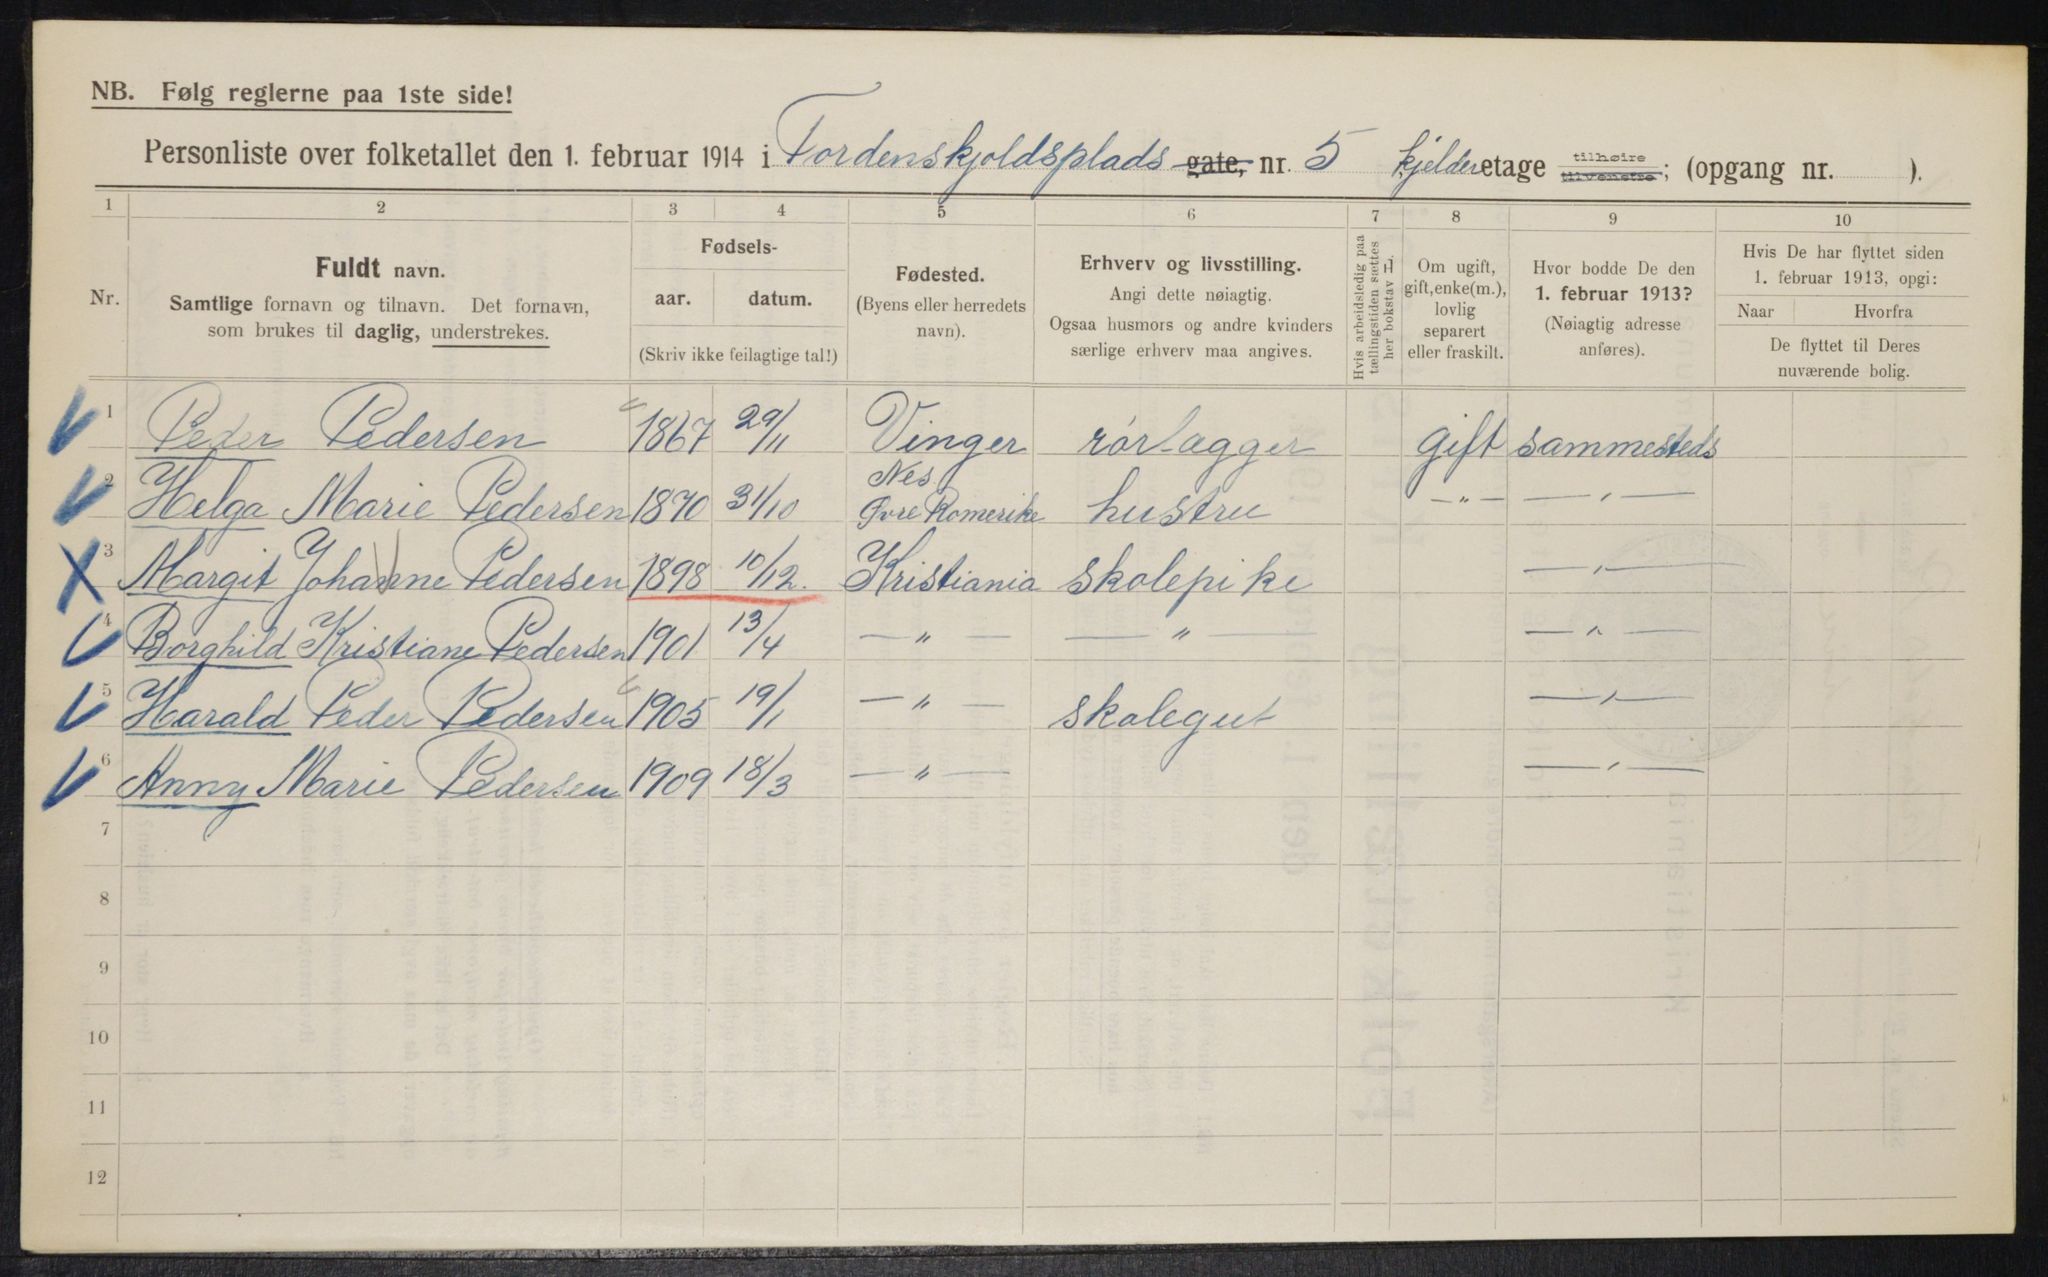 NB. Følg reglerne paa 1ste side!
Personliste over folketallet den 1. februar 1914 i Tordenskjoldsplads gate, nr. 5 kjelder etage tilhøire tilvenstre; (opgang nr. ).
1 2 3 4 5 6 7 8 9 10
Nr.
Fuldt navn.
Samtlige fornavn og tilnavn. Det fornavn,
som brukes til daglig, understrekes.
Fødsels-
aar. datum.
(Skriv ikke feilagtige tal!)
Fødested.
(Byens eller herredets
navn).
Erhverv og livsstilling.
Angi dette nøiagtig.
Ogsaa husmors og andre kvinders
særlige erhverv maa angives.
Hvis arbeidsledig paa
tællingstiden sættes
her bokstav L.
Om ugift,
gift, enke(m.),
lovlig
separert
eller fraskilt.
Hvor bodde De den
1. februar 1913?
(Nøiagtig adresse
anføres).
Hvis De har flyttet siden
1. februar 1913, opgi:
Naar Hvorfra
De flyttet til Deres
nuværende bolig.
1 Peder Pedersen 1867 29/11 Vinger rørlægger gift sammesteds
2 Helga Marie Pedersen 1870 31/10 Nes Øvre Romerike hustru — " — — " —
3 Margit Johanne Pedersen 1898 10/12. Kristiania skolepike — " —
4 Borghild Kristiane Pedersen 1901 13/4 — " — — " — — " —
5 Harald Peder Pedersen 1905 19/1 — " — skolegut — " —
6 Anny Marie Pedersen 1909 18/3 — " — — " —
7
8
9
10
11
12